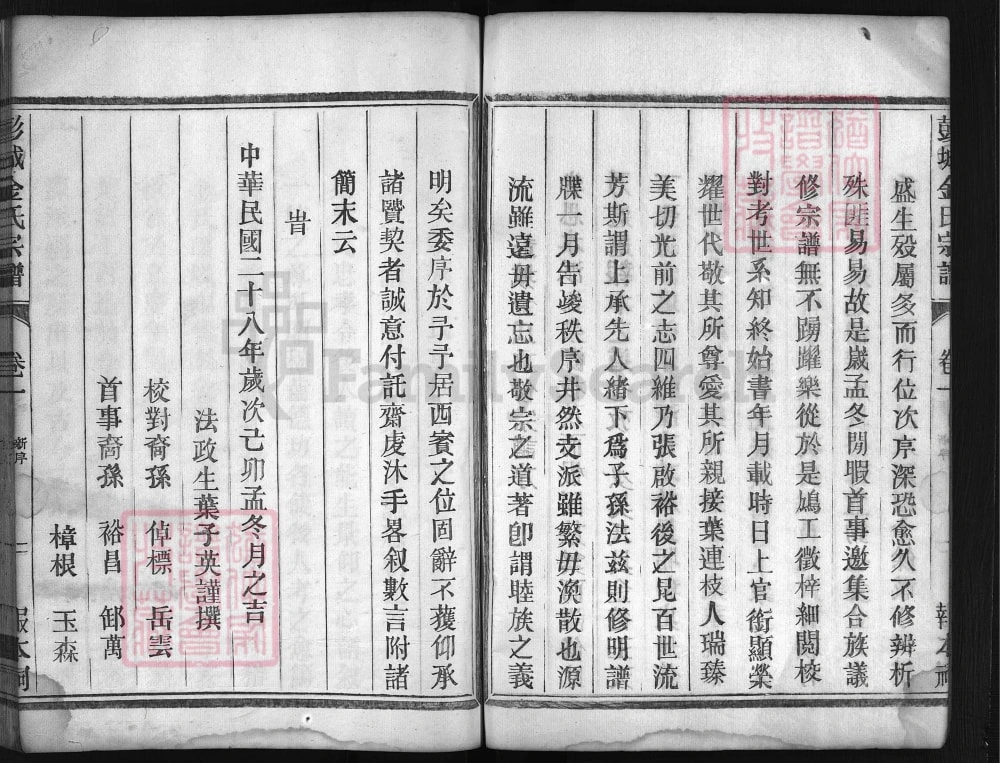 彭城金氏宗譜 卷一
盛生殁屬多而行位次序深恐愈久不修辨析
殊匪易易故是嵗孟冬閒暇首事邀集合族議
修宗譜無不踴躍樂從於是鳩工徵梓細閱校
對考世系知終始書年月載時日上官銜顯榮
耀世代敬其所尊愛其所親接葉連枝人瑞臻
美切光前之志四維乃張啟裕後之昆百世流
芳斯謂上承先人緒下爲子孫法兹則修明譜
牒一月告竣秩序井然支派雖繁毋渙散也源
流雖遠毋遺忘也敬宗之道著卽謂睦族之義
明矣委序於予予居西賓之位固辭不獲仰承
諸贒契者誠意付託齋虔沐手畧叙數言附諸
簡末云
旹
中華民國二十八年歲次己卯孟冬月之吉
法政生葉子英謹撰
校對裔孫 倬標 岳雲
首事裔孫 裕昌 邮萬
樟根 玉森
彭城金氏宗譜 卷一 新序 報本祠
FamilySearch